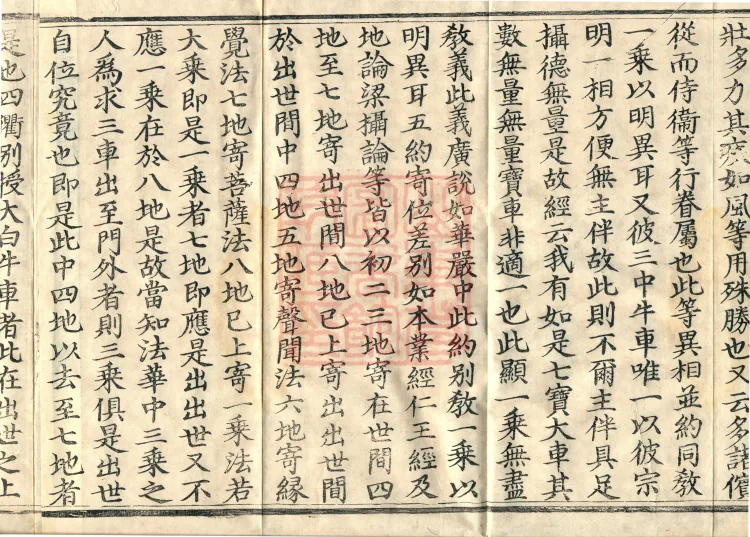 壯多力其疾如風等用殊勝也又云多諸儐
從而侍衛等行眷屬也此等異相並約同教
一乘以明異耳又彼三中牛車唯一以彼宗
明一相方便無主伴故此則不爾主伴具足
攝德無量是故經云我有如是七寶大車其
數無量無量寶車非適一也此顯一乘無盡
教義此義廣說如華嚴中此約別教一乘以
明異耳五約寄位差別如本業經仁王經及
地論梁攝論等皆以初二三地寄在世間四
地至七地寄出世間八地已上寄出出世間
於出世間中四地五地寄聲聞法六地寄緣
覺法七地寄菩薩法八地已上寄一乘法若
大乘即是一乘者七地即應是出出世又不
應一乘在於八地是故當知法華中三乘之
人為求三車出至門外者則三乘俱是出世
自位究竟也即是此中四地以去至七地者
是也四衢別授大白牛車者此在出世之上